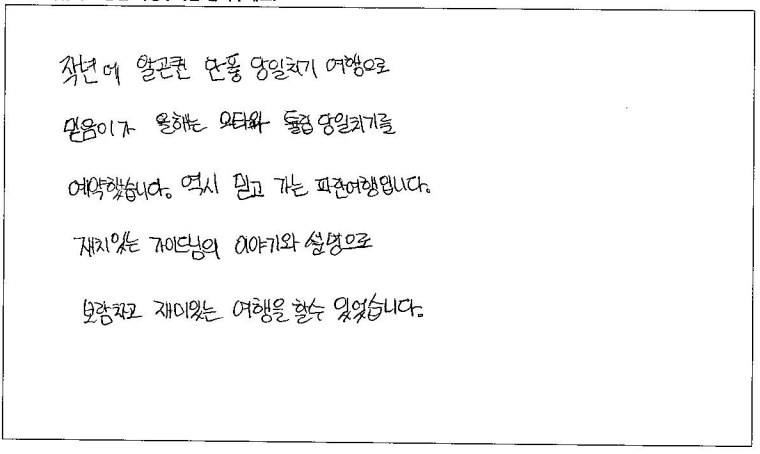 작년에 알곤퀸 단풍 당일치기 여행으로
믿음이 가 올해는 오타와 튤립 당일치기를
예약했습니다. 역시 믿고 가는 파란여행입니다.
재치있는 가이드님의 이야기와 설명으로
보람차고 재미있는 여행을 할수 있었습니다.